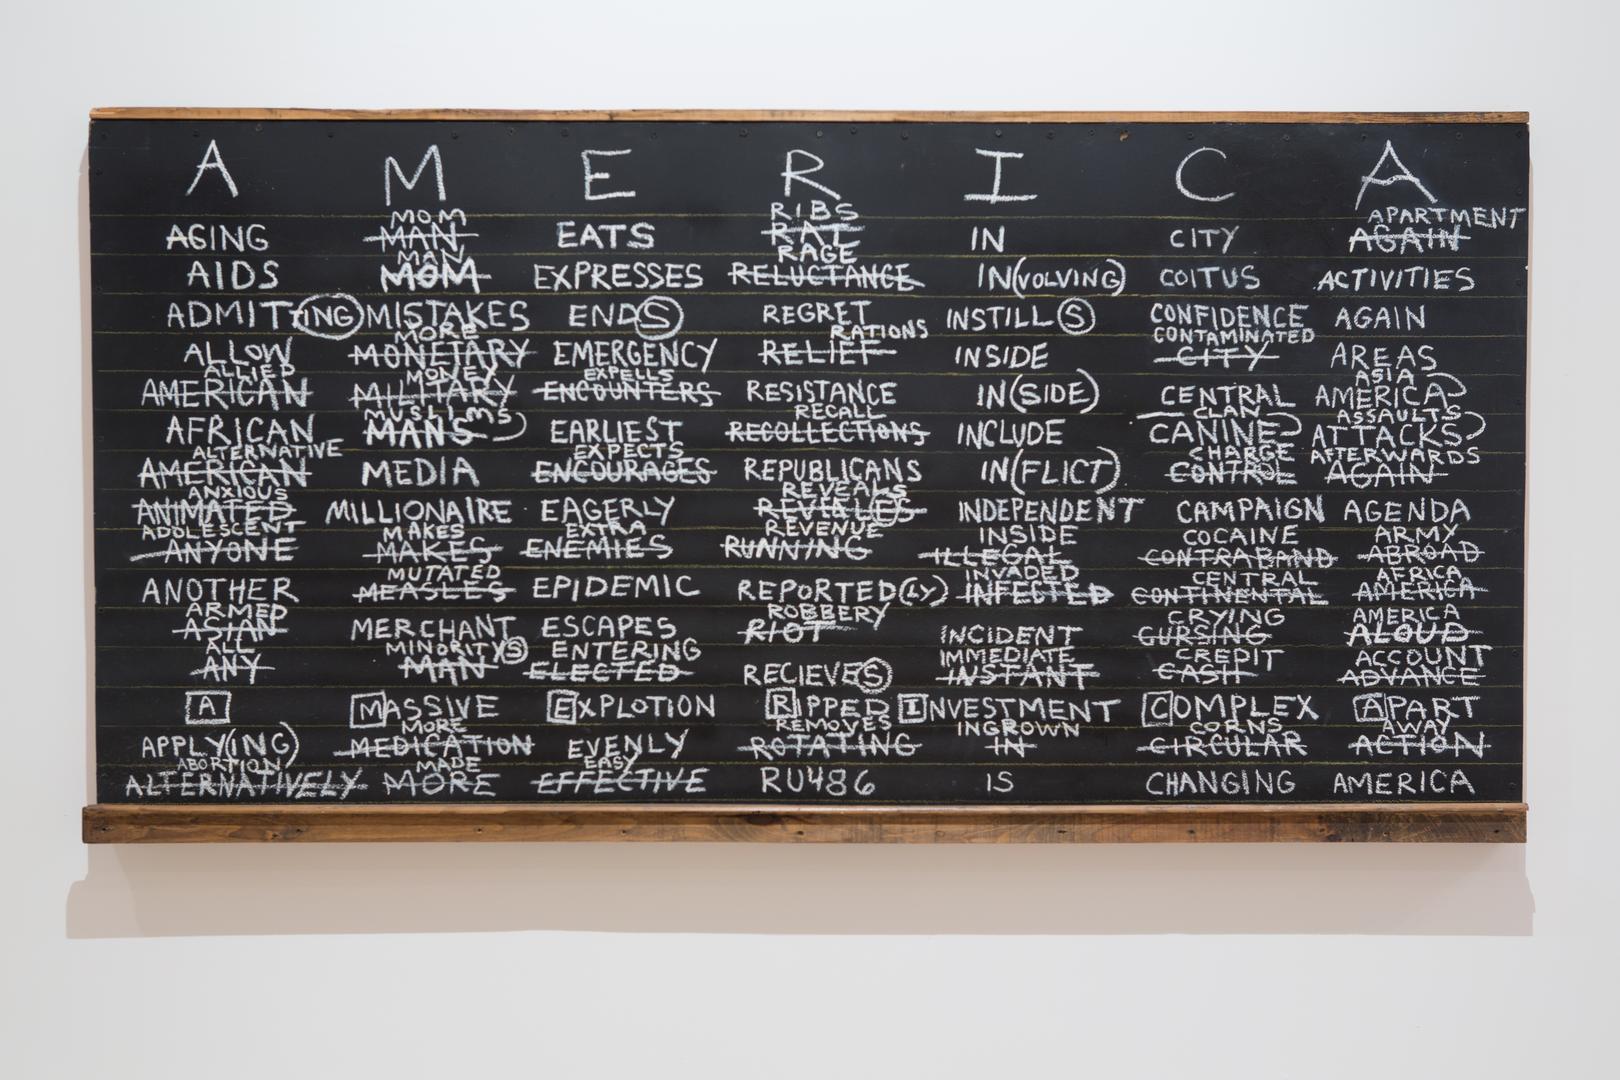 A M E R I C A
MOM RIBS APARTMENT
AGING MAN EATS RAL IN CITY AGAIN
MAN RAGE
AIDS MOM EXPRESSES RELUCTANCE IN(VOLVING) COITUS ACTIVITIES
ADMITTING MISTAKES ENDS REGRET INSTILLS CONFIDENCE AGAIN
MORE RATIONS CONTAMINATED
ALLOW MONETARY EMERGENCY RELIEF INSIDE CITY AREAS
ALLIED MONEY EXPELLS ASIA
AMERICAN MILITARY ENCOUNTERS RESISTANCE IN(SIDE) CENTRAL AMERICA
MUSLIMS RECALL CLAN ASSAULTS
AFRICAN MANS EARLIEST RECOLLECTIONS INCLUDE CANINE ATTACKS
ALTERNATIVE EXPECTS CHARGE AFTERWARDS
AMERICAN MEDIA ENCOURAGES REPUBLICANS IN(FLICT) CONTROL AGAIN
ANXIOUS REVEALS
ANIMATED MILLIONAIRE EAGERLY INDEPENDENT CAMPAIGN AGENDA
ADOLESCENT MAKES EXTRA REVENUE INSIDE COCAINE ARMY
ANYONE MAKES ENEMIES RUNNING ILLEGAL CONTRABAND ABROAD
MUTATED INVADED CENTRAL AFRICA
ANOTHER MEASLES EPIDEMIC REPORTED(LY) INFECTED CONTINENTAL AMERICA
ARMED ROBBERY CRYING AMERICA
ASIAN MERCHANT ESCAPES RIOT INCIDENT CURSING ALOUD
ALL MINORITYS ENTERING IMMEDIATE CREDIT ACCOUNT
ANY MAN ELECTED RECIEVES INSTANT CASH ADVANCE
A MASSIVE EXPLOTION RIPPED INVESTMENT COMPLEX APART
MORE REMOVES INGROWN CORNS AWAY
APPLY(ING) MEDICATION EVENLY ROTATING IN CIRCULAR ACTION
ABORTION MADE EASY
ALTERNATIVELY MORE EFFECTIVE RU486 IS CHANGING AMERICA